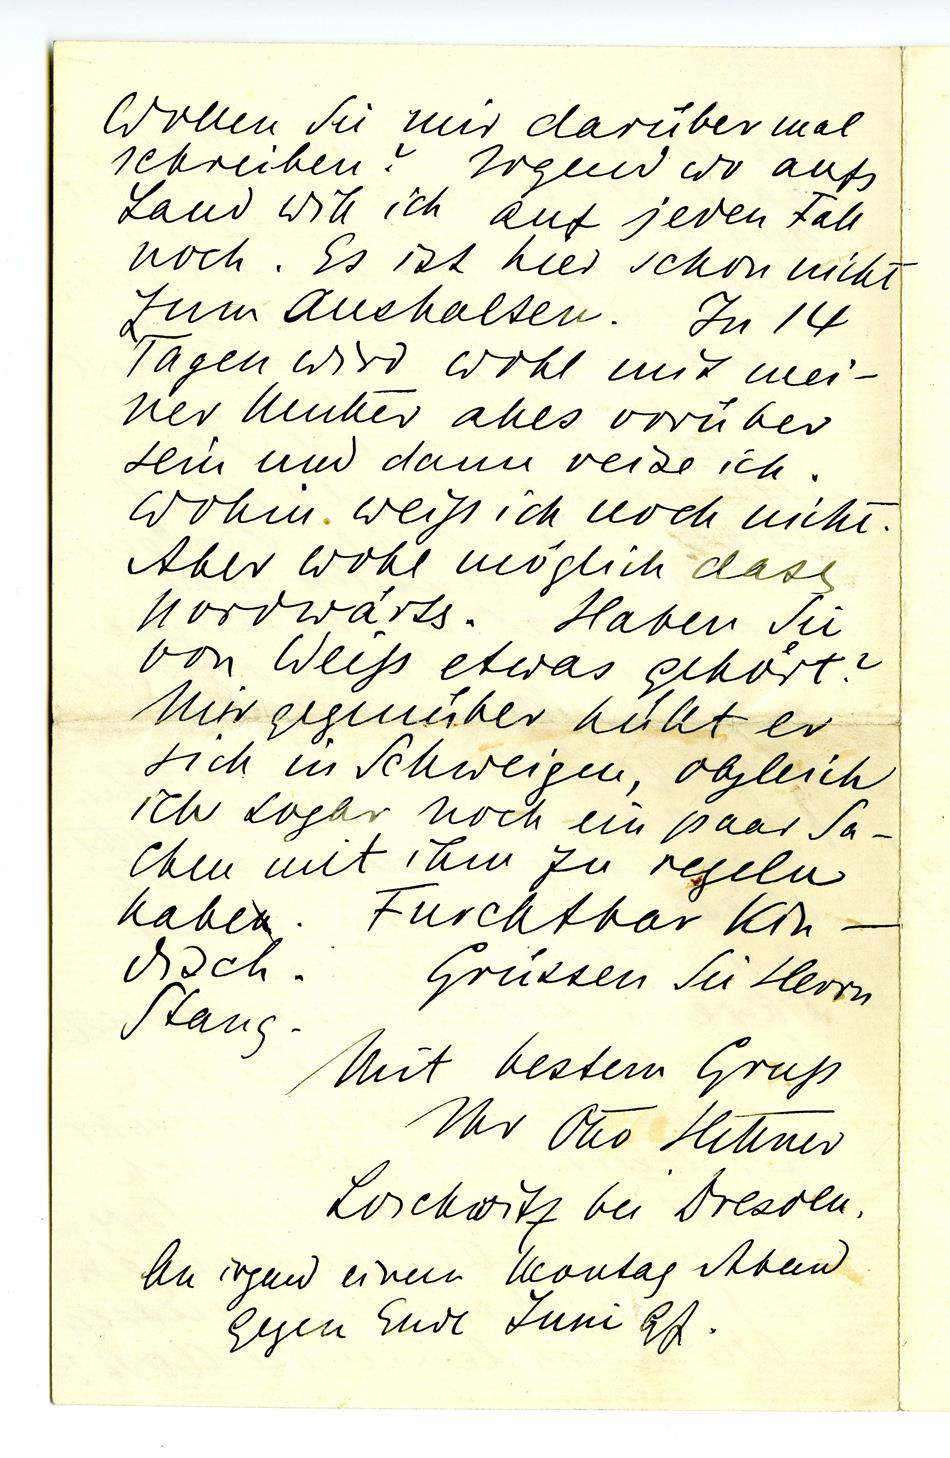 Wollen Sie mir darüber mal
schreiben? Irgend wo aufs
Land will ich auf jeden Fall
noch. Es ist hier schon nicht
zum Aushalten. In 14
Tagen wird wohl mit mei-
ner Mutter alles vorüber
sein und dann reise ich.
Wohin weiß ich noch nicht.
Aber wohl möglich dass
nordwärts. Haben Sie
von Weiß etwas gehört?
Mir gegenüber hüllt er
sich in Schweigen, obgleich
ich sogar noch ein paar Sa-
chen mit ihm zu regeln
habe. Furchtbar kin-
disch. Grüssen Sie Herrn
Stang.
Mit bestem Gruß
Ihr Otto Hettner
Loschwitz bei Dresden.
An irgend einem Montag Abend
gegen Ende Juni